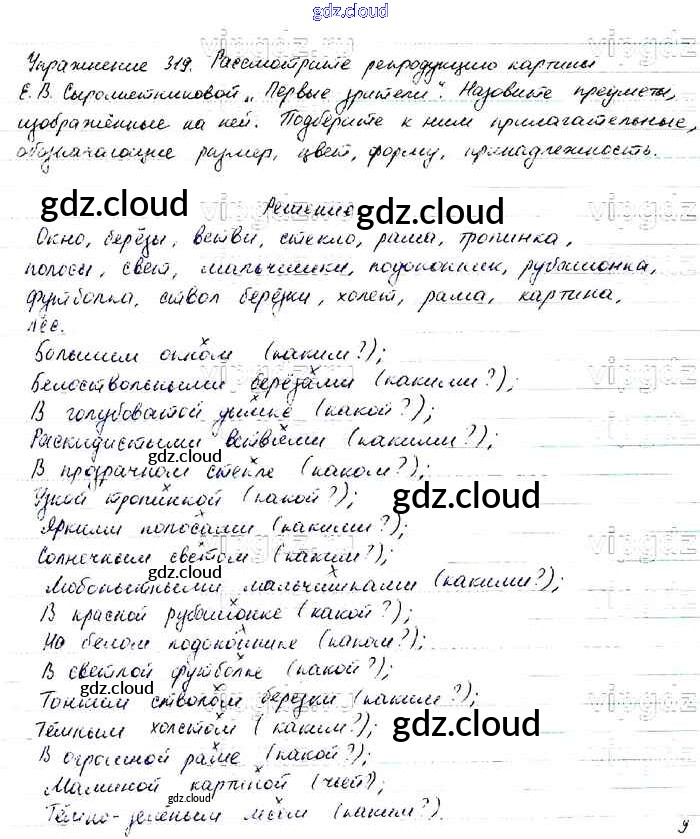 gdz.cloud
Упражнение 319. Рассмотрите репродукцию картины
Е. В. Сыромятниковой „Первые зрители". Назовите предметы,
изображённые на ней. Подберите к ним прилагательные,
обозначающие размер, цвет, форму, принадлежность.
gdz.cloud gdz.cloud
Решение
Окно, берёзы, ветви, стекло, рама, тропинка,
полосы, свет, мальчишки, подоконник, рубашонка,
футболка, ствол берёзки, холст, рама, картина,
лес.
Большим окном (каким?);
Белоствольными берёзами (какими?);
В голубоватой дымке (какой?);
Раскидистыми ветвями (какими?);
gdz.cloud
В прозрачном стекле (каком?);
Узкой тропинкой (какой?);
gdz.cloud
Яркими полосами (какими?);
Солнечным светом (каким?);
gdz.cloud
Любопытными мальчишками (какими?);
В красной рубашонке (какой?);
На белом подоконнике (каком?);
В светлой футболке (какой?);
gdz.cloud
Тонким стволом берёзки (каким?);
Тёмным холстом (каким?);
gdz.cloud
В огромной раме (какой?);
Маминой картиной (чьей?);
gdz.cloud
Тёмно-зелёным лесом (каким?).
vipgdz
vipgdz
vipgdz
vipgdz
vipgdz
vipgdz